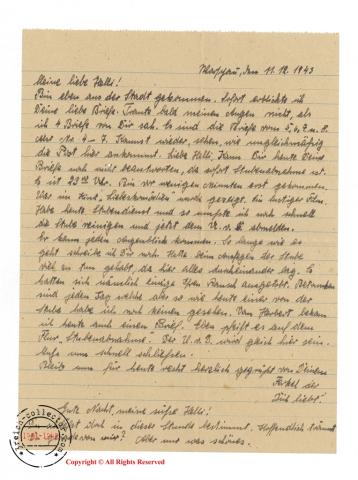 den 11.12.1943
Meine liebe Halli!
Bin eben aus der Stadt gekommen. Sofort erblickte ich
Deine liebe Briefe. Traute bald meinen Augen nicht, als
ich 4 Briefe von Dir sah. Es sind die Briefe vom 5., 6., 7. u. 8.
oder Nr. 4 - 7. Kannst wieder sehen, wie ungleichmäßig
die Post hier ankommt. Liebe Halli, kann Dir heute Deine
Briefe noch nicht beantworten, da sofort Stubenabnahme ist.
Es ist Uhr. Bin vor wenigen Minuten erst gekommen.
War im Kino, wurde gezeigt. Ein lustiger Film.
Habe heute Stubendienst und so mußte ich noch schnell
die Stube reinigen und jetzt dem U. v. D. abmelden.
Er kann jeden Augenblick kommen. So lange wie es
geht schreibe ich Dir noch. Hatte beim der Stube
viel zu tun gehabt, da hier alles durcheinander lag. Es
hatten sich nämlich einige Ihren Rausch ausgetobt. Betrunken
sind jeden Tag welche aber so wie heute einer von der
Stube habe ich noch keinen gesehen. Von Herbert bekam
ich heute auch einen Brief. Eben pfeift es auf dem
Flur Stubenabnahme. Der U. v. D. wird gleich hier sein.
Muß nun schnell schließen.
Bleib nun für heute recht herzlich gegrüßt von Deinem
der
Dich liebt!
Gute Nacht, meine süße Halli!
doch in dieser Stunde bestimmt. Hoffentlich träumst
von mir? Aber nur was schönes.
1941-1945
Copyright © All Rights Reserved